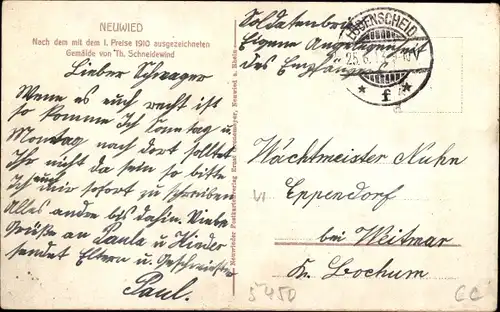 NEUWIED
Nach dem mit dem I. Preise 1910 ausgezeichneten
Gemälde von Th. Schneidewind
Lieber Schwager
Wenn es euch recht ist
so komme Ich Sonntag u
Montag nach dort solltet
ihr nicht da sein so bitte
ich mir sofort zu schreiben
Alles andre bis dahin. Viele
Grüße an Paula u Kinder
sendet Eltern u. Geschwister
Paul.
Neuwieder Postkartenverlag Ernst Neuwied a. Rhein
Soldatenbrief
Eigene Angelegenheit
des Empfängers
LÜDENSCHEID
25.6.
* f *
Wachtmeister Nuhn
Eppendorf
bei Weitmar
Kr. Bochum
5450
CC